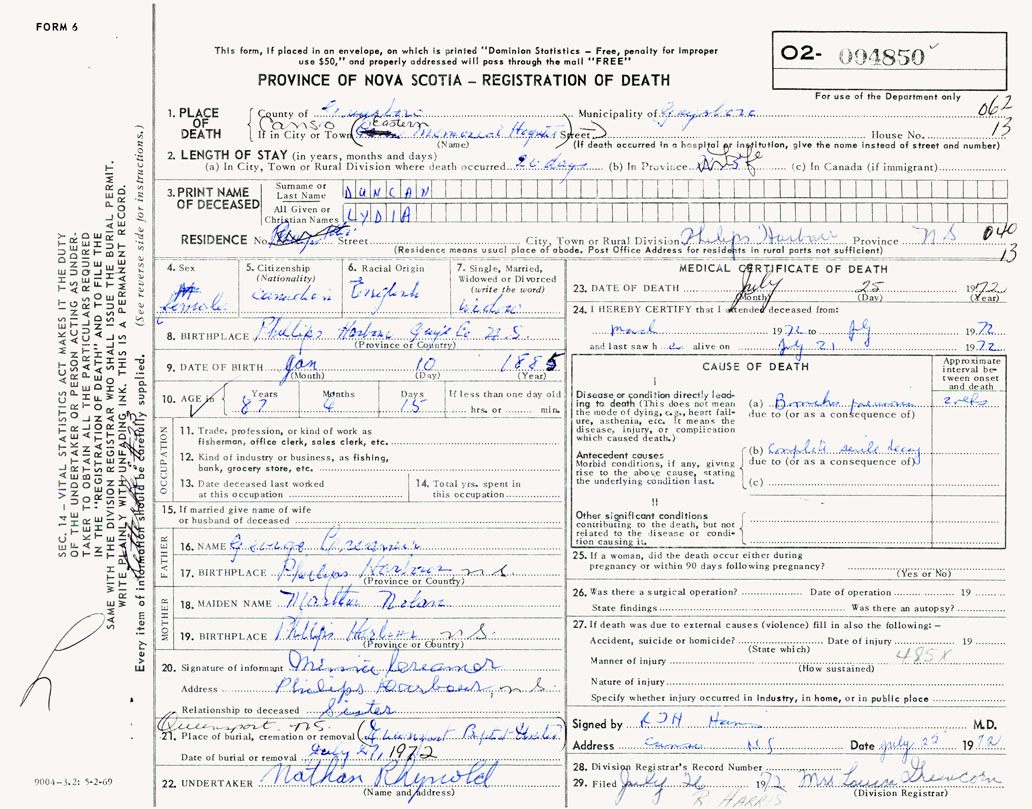 FORM 6
This form, if placed in an envelope, on which is printed "Dominion Statistics – Free, penalty for improper
use $50," and properly addressed will pass through the mail "FREE"
PROVINCE OF NOVA SCOTIA – REGISTRATION OF DEATH
O2- 004850
For use of the Department only
062
13
1. PLACE OF DEATH
County of Guysboro Municipality of Guysboro
Canso Eastern
If in City or Town Memorial Hospital Street House No.
(Name) (If death occurred in a hospital or institution, give the name instead of street and number)
2. LENGTH OF STAY (in years, months and days)
(a) In City, Town or Rural Division where death occurred 20 days (b) In Province Life (c) In Canada (if immigrant)
3. PRINT NAME OF DECEASED
Surname or Last Name DUNCAN
All Given or Christian Names LYDIA
RESIDENCE No. Street City, Town or Rural Division Philips Harbour Province NS 040
13
(Residence means usual place of abode. Post Office Address for residents in rural parts not sufficient)
4. Sex
female
5. Citizenship
(Nationality)
Canadian
6. Racial Origin
English
7. Single, Married,
Widowed or Divorced
(write the word)
widow
8. BIRTHPLACE Philips Harbour Guys Co N.S.
(Province or Country)
9. DATE OF BIRTH Jan 10 1885
(Month) (Day) (Year)
10. AGE in Years 87 Months 6 Days 15 If less than one day old
hrs. or min.
OCCUPATION
11. Trade, profession, or kind of work as
fisherman, office clerk, sales clerk, etc.
12. Kind of industry or business, as fishing,
bank, grocery store, etc.
13. Date deceased last worked
at this occupation
14. Total yrs. spent in
this occupation
15. If married give name of wife
or husband of deceased
FATHER
16. NAME George Creamer
17. BIRTHPLACE Philips Harbour n.s.
(Province or Country)
MOTHER
18. MAIDEN NAME Martha Nolan
19. BIRTHPLACE Philips Harbour n.s.
(Province or Country)
20. Signature of informant Minnie Creamer
Address Philips Harbour, n.s.
Relationship to deceased Sister
Queensport NS
21. Place of burial, cremation or removal (Queensport Baptist
Date of burial or removal July 27, 1972
22. UNDERTAKER Nathan Rhynold
(Name and address)
MEDICAL CERTIFICATE OF DEATH
23. DATE OF DEATH July 25 1972
(Month) (Day) (Year)
24. I HEREBY CERTIFY that I attended deceased from:
March 1972 to July 1972
and last saw h alive on July 21 1972
CAUSE OF DEATH
Approximate
interval be-
tween onset
and death
I
Disease or condition directly lead-
ing to death (This does not mean
the mode of dying, e.g., heart fail-
ure, asthenia, etc. It means the
disease, injury, or complication
which caused death.)
(a) Broncho pneumonia 2 wks
due to (or as a consequence of)
Antecedent causes
Morbid conditions, if any, giving
rise to the above cause, stating
the underlying condition last.
(b) Complete senile decay
due to (or as a consequence of)
(c)
II
Other significant conditions
contributing to the death, but not
related to the disease or condi-
tion causing it.
25. If a woman, did the death occur either during
pregnancy or within 90 days following pregnancy?
(Yes or No)
26. Was there a surgical operation? Date of operation 19
State findings Was there an autopsy?
27. If death was due to external causes (violence) fill in also the following: –
Accident, suicide or homicide? Date of injury 19
(State which)
485X
Manner of injury
(How sustained)
Nature of injury
Specify whether injury occurred in Industry, in home, or in public place
Signed by M.D.
Address Canso NS Date July 25 1972
28. Division Registrar's Record Number
29. Filed July 26 1972 Mrs
(Division Registrar)
R. HARRIS
SEC. 14 – VITAL STATISTICS ACT MAKES IT THE DUTY
OF THE UNDERTAKER OR PERSON ACTING AS UNDER-
TAKER TO OBTAIN ALL THE PARTICULARS REQUIRED
IN THE "REGISTRATION OF DEATH" AND TO FILE THE
SAME WITH THE DIVISION REGISTRAR WHO SHALL ISSUE THE BURIAL PERMIT.
WRITE PLAINLY WITH UNFADING INK. THIS IS A PERMANENT RECORD.
Every item of information should be carefully supplied. (See reverse side for instructions.)
9004-3.2: 5-2-69